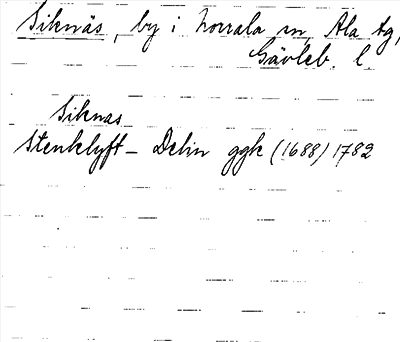 Siknäs, by i Norrala sn, Ala tg,
Gävleb. l.
Siknas
Stenklyft - Delin ggk (1688) 1782